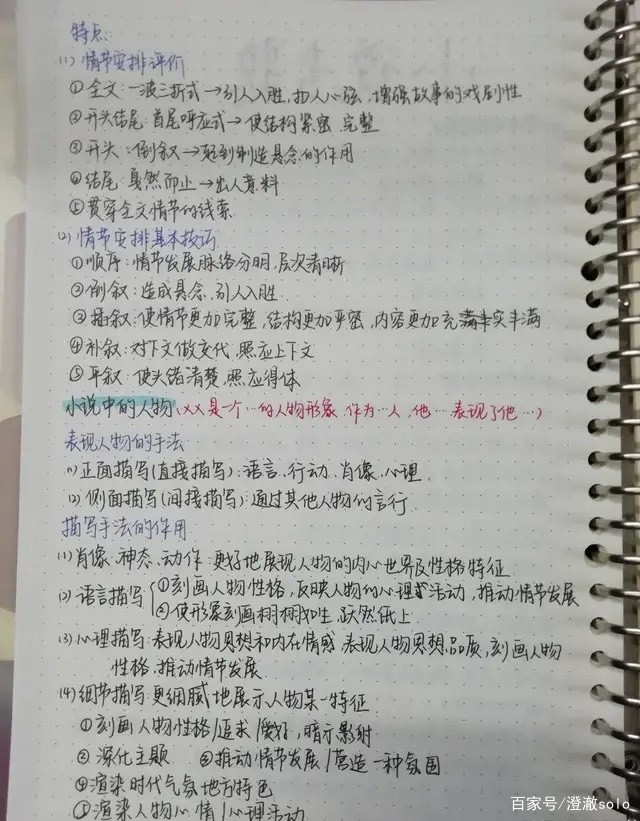 特点:
(1) 情节安排评价
①全文:一波三折式→引人入胜,扣人心弦,增强故事的戏剧性
②开头结尾:首尾呼应式→使结构紧密、完整
③开头:倒叙→起到制造悬念的作用
④结尾:戛然而止→出人意料
⑤贯穿全文情节的线索
(2) 情节安排基本技巧
①顺序:情节发展脉络分明,层次清晰
②倒叙:造成悬念,引人入胜
③插叙:使情节更加完整,结构更加严密,内容更加充实丰满
④补叙:对下文做交代,照应上下文
⑤平叙:使头绪清楚,照应得体
小说中的人物(××是一个…的人物形象,作为…人,他…表现了他…)
表现人物的手法
(1)正面描写(直接描写):语言、行动、肖像、心理
(2)侧面描写(间接描写):通过其他人物的言行
描写手法的作用
(1)肖像、神态、动作:更好地展现人物的内心世界及性格特征
(2)语言描写 ①刻画人物性格,反映人物的心理活动,推动情节发展
②使形象刻画栩栩如生,跃然纸上
(3)心理描写:表现人物思想和内在情感,表现人物思想品质,刻画人物
性格,推动情节发展
(4)细节描写:更细腻地展示人物某一特征
①刻画人物性格/追求/爱好,暗示影射
②深化主题 ③推动情节发展/营造一种氛围
④渲染时代气氛地方特色
⑤渲染人物心情/心理活动
百家号/澄澈solo